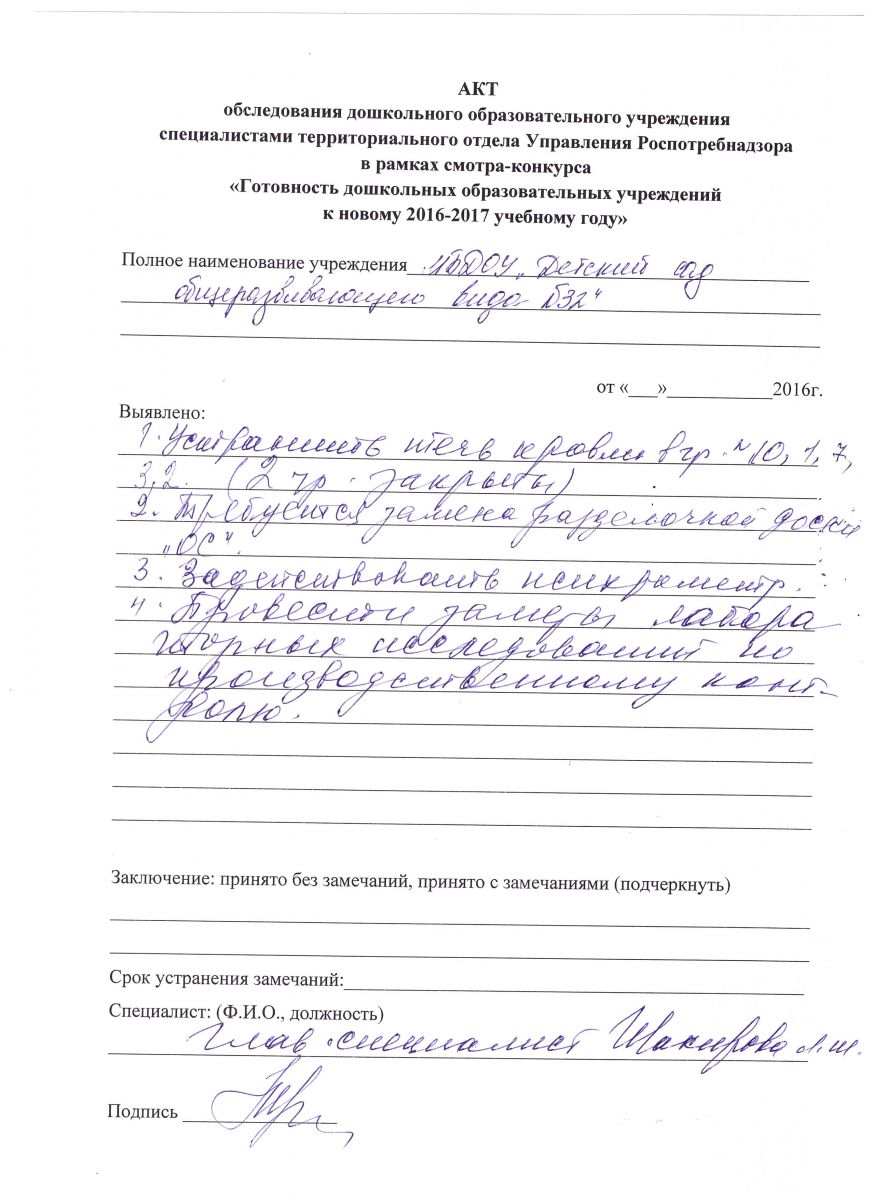 АКТ
обследования дошкольного образовательного учреждения
специалистами территориального отдела Управления Роспотребнадзора
в рамках смотра-конкурса
«Готовность дошкольных образовательных учреждений
к новому 2016-2017 учебному году»
Полное наименование учреждения МБДОУ „Детский сад
общеразвивающего вида №32"
от «___»____________2016г.
Выявлено:
1. Устранить течь кровли в гр. № 10, 1, 7,
3, 2. (2 гр. закрыты)
2. Требуется замена разделочной доски
„ОС".
3. Задействовать психрометр.
4. Провести замеры лабора
торных исследований по
производственному конт-
ролю.
Заключение: принято без замечаний, принято с замечаниями (подчеркнуть)
Срок устранения замечаний:
Специалист: (Ф.И.О., должность)
Глав. специалист Шакирова Л.Ш.
Подпись